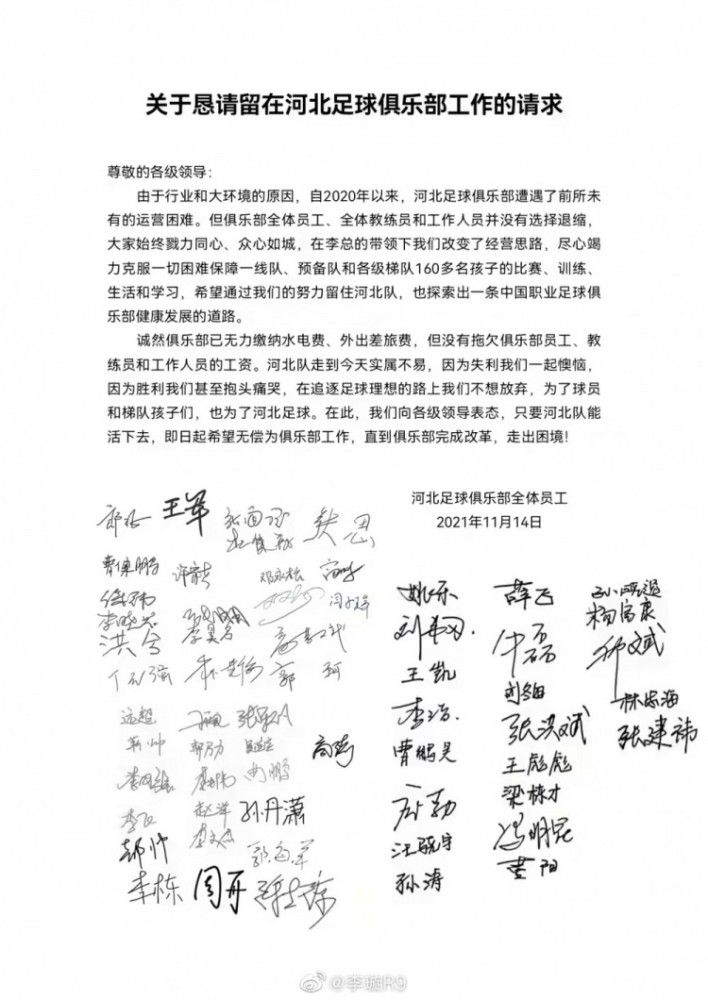 关于恳请留在河北足球俱乐部工作的请求
尊敬的各级领导：
由于行业和大环境的原因，自2020年以来，河北足球俱乐部遭遇了前所未
有的运营困难。但俱乐部全体员工、全体教练员和工作人员并没有选择退缩，
大家始终戮力同心、众心如城，在李总的带领下我们改变了经营思路，尽心竭
力克服一切困难保障一线队、预备队和各级梯队160多名孩子的比赛、训练、
生活和学习，希望通过我们的努力留住河北队，也探索出一条中国职业足球俱
乐部健康发展的道路。
诚然俱乐部已无力缴纳水电费、外出差旅费，但没有拖欠俱乐部员工、教
练员和工作人员的工资。河北队走到今天实属不易，因为失利我们一起懊恼，
因为胜利我们甚至抱头痛哭，在追逐足球理想的路上我们不想放弃，为了球员
和梯队孩子们，也为了河北足球。在此，我们向各级领导表态，只要河北队能
活下去，即日起希望无偿为俱乐部工作，直到俱乐部完成改革，走出困境！
河北足球俱乐部全体员工
2021年11月14日
王军
曹保鹏
洪兮
郭珂
姚乐
薛飞
杨富康
王凯
李浩
曹鹏昊
张洪斌
林宏海
张建祎
王彪彪
梁栋才
冯明昆
黄阳
汪晓宇
孙涛
远超
靳帅
赵洋
孙丹潇
郝帅
李栋
周丹
@李璇R9